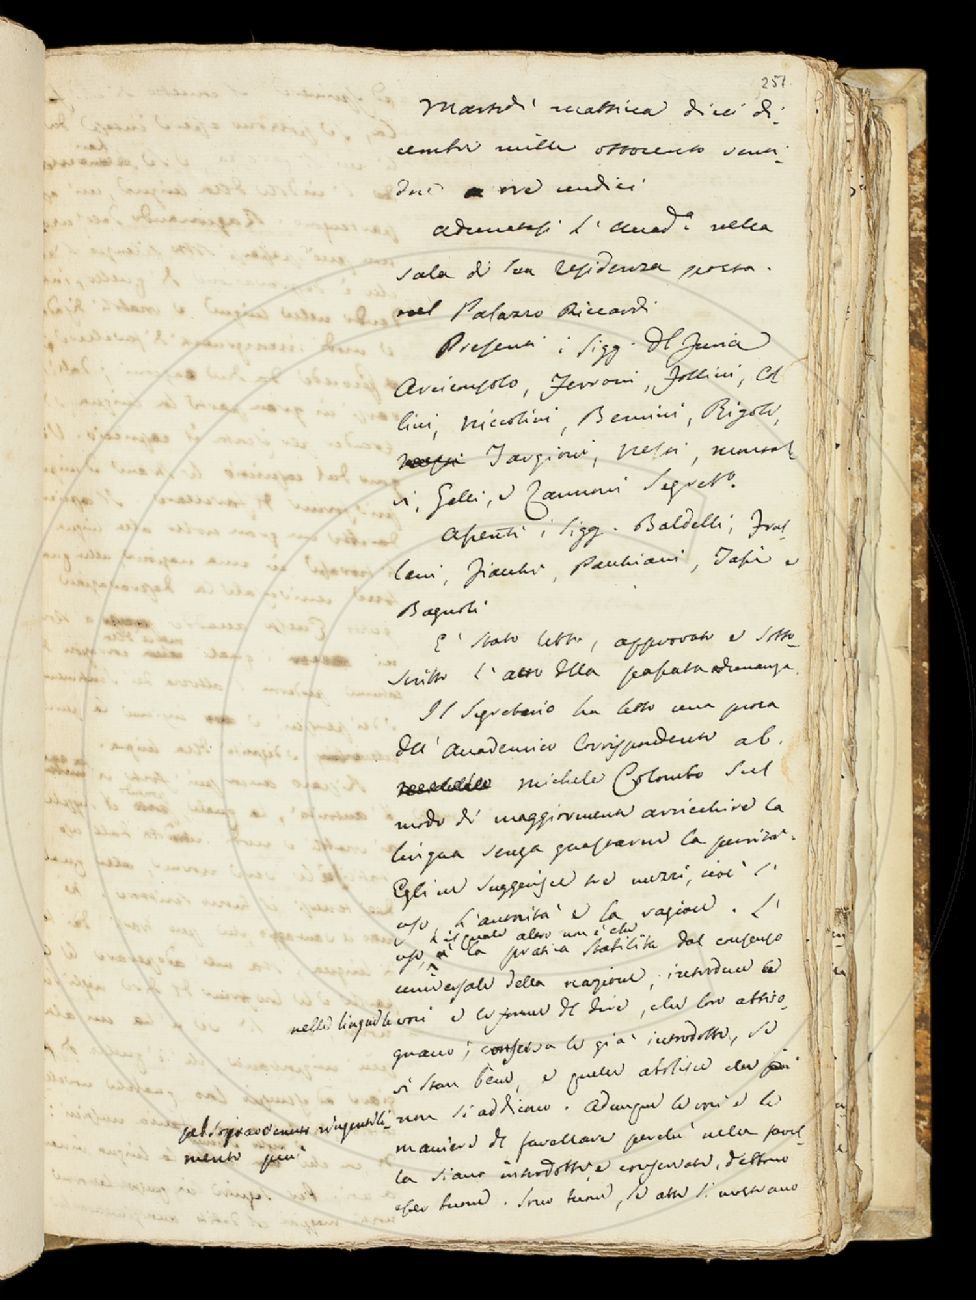 251.
Martedì mattina dieci di-
cembre mille ottocento venti-
due a ore undici
Adunatasi l'Accad.ª nella
sala di sua residenza posta
nel Palazzo Riccardi
Presenti i Sigg. Del Furia
Arciconsolo, Ferroni, Follini, Col
lini, Niccolini, Bencini, Rigoli,
Targioni, Nesti,
Gelli, e Zannoni Segret.º
Assenti i Sigg. Baldelli, Frul
lani, Fiacchi, Pacchiani, e
Bagnoli
E' stato letto, approvato e sotto-
scritto l'atto della passata adunanza.
Il Segretario ha letto una prosa
dell'Accademico Corrispondente ab.
Michele Colombo sul
modo di maggiormente arricchire la
lingua senza guastarne la purità.
Egli ne suggerisce tre mezzi, cioè l'
uso l'autorità e la ragione. L'
il quale altro non è che
uso, la pratica stabilita dal consenso
universale della nazione, introduce
nelle lingue le voci e le forme di dire, che loro attin-
conserva le già introdotte, se
vi stan bene, e quelle abolisce che più
non si addicono. Adunque le voci e le
più
maniere di favellare perchè nella favel
la siano introdotte, e conservate, debbono
esser buone. Sono buone, se atte si mostrano